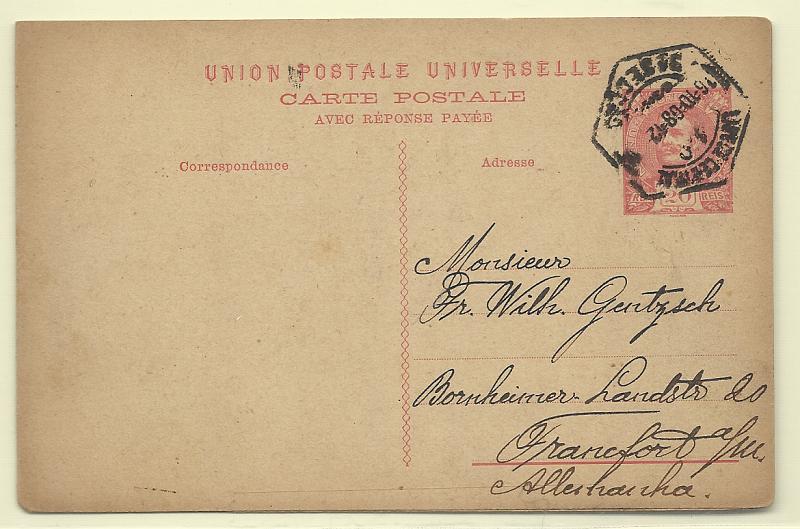 UNION POSTALE UNIVERSELLE
CARTE POSTALE
AVEC RÉPONSE PAYÉE
Correspondance
Adresse
20
REIS
Monsieur
Fr. Wilh. Gentzsch
Bornheimer Landstr 20
Francfort a/m.
Allemanha.